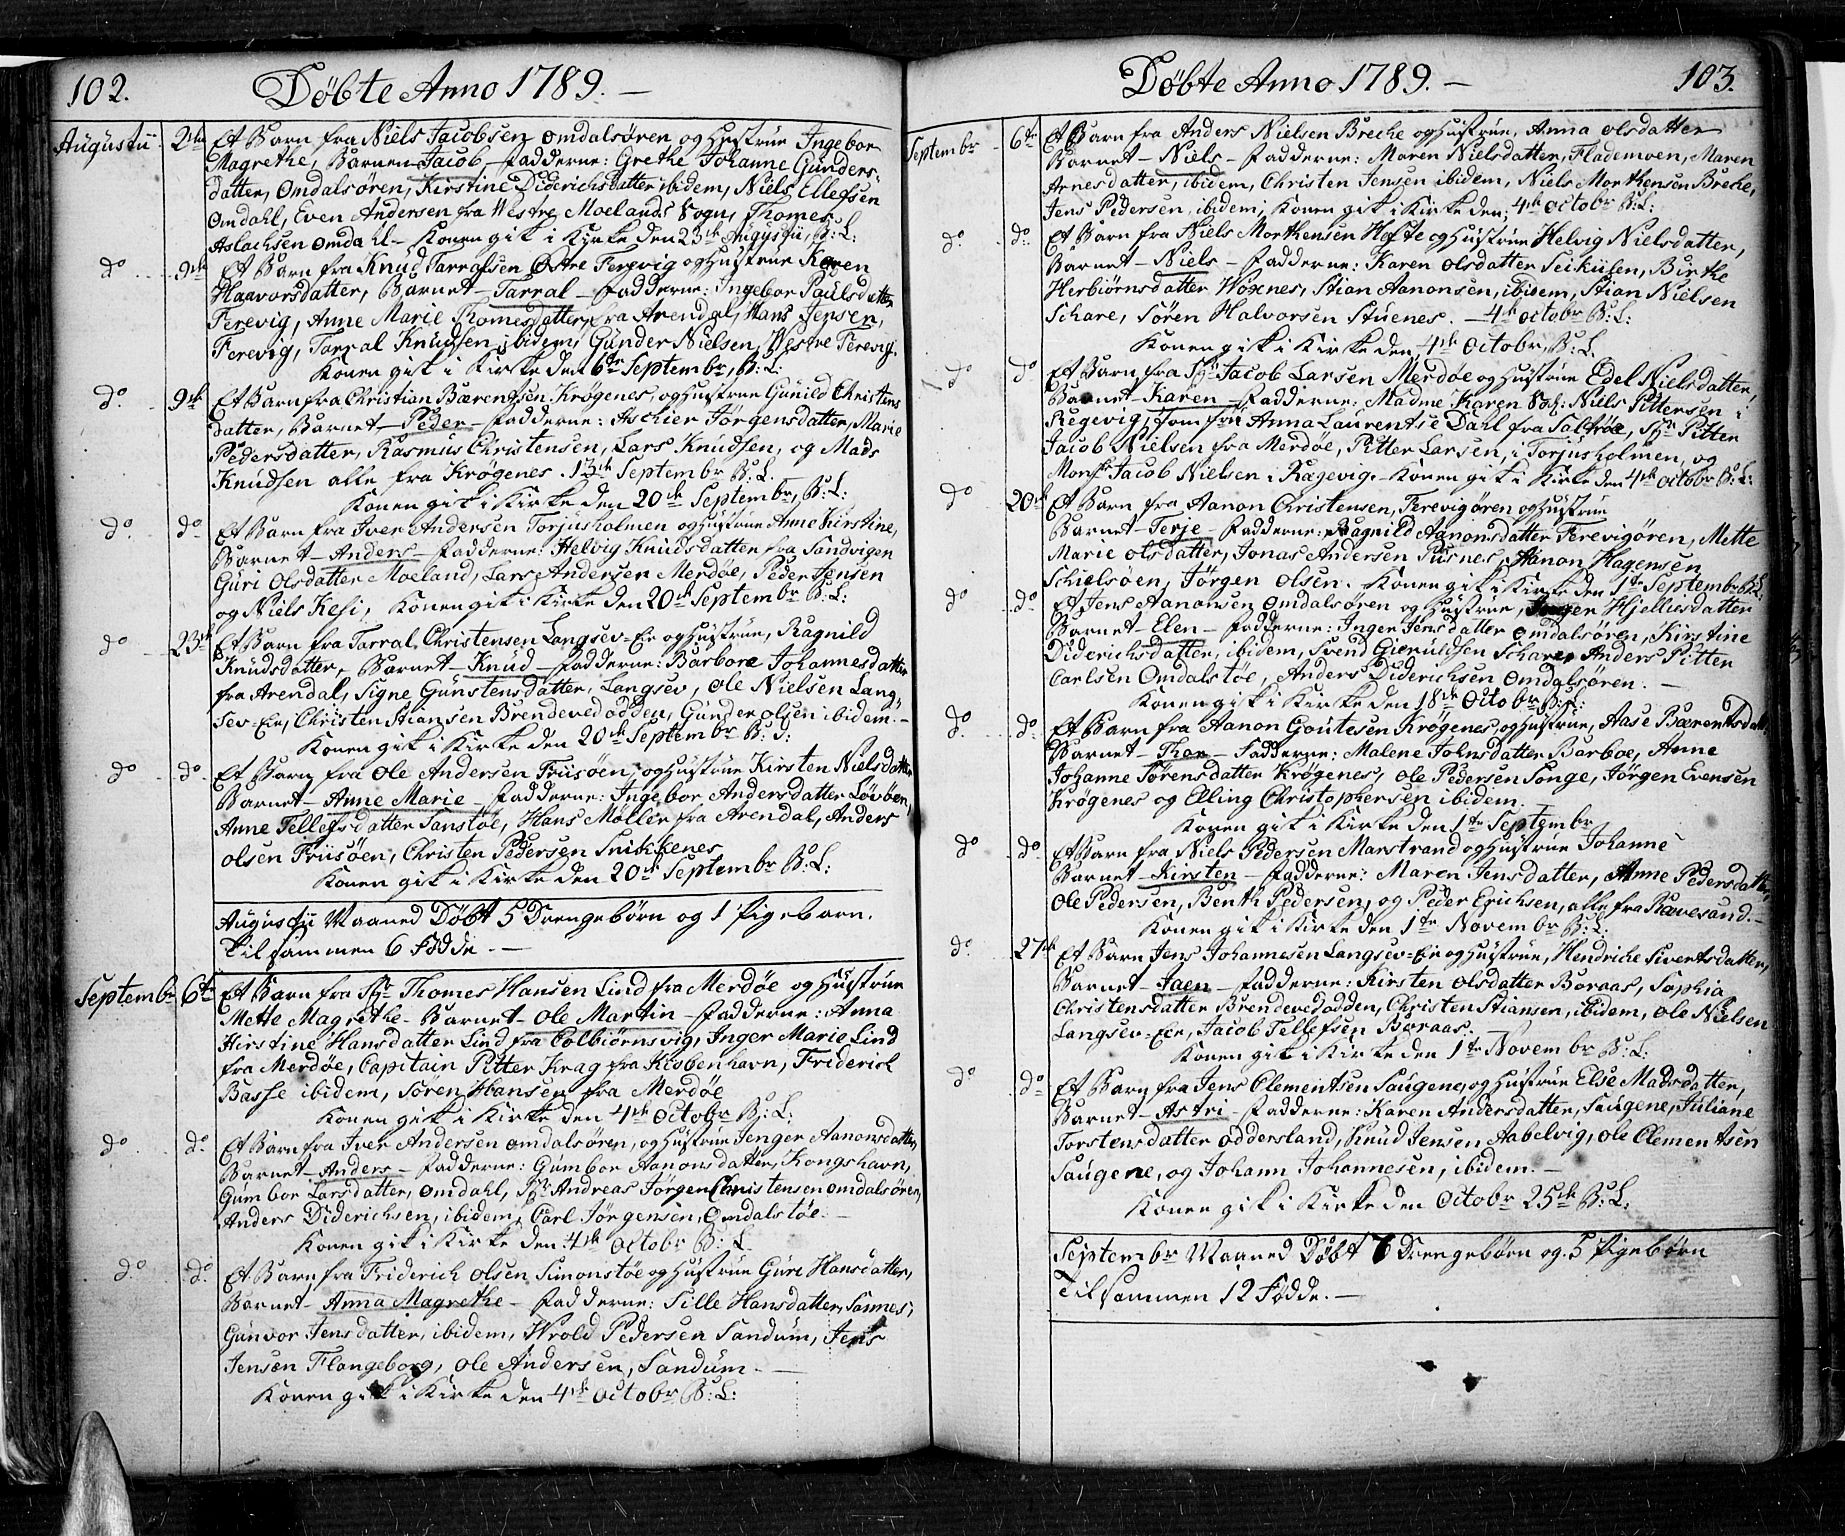 102.
Døbte Anno 1789. —
Augustii 2den Et Barn fra Niels Jacobsen Omdalsøren og Hustrue Ingebor
Magrethe, Barnen Jacob – Fadderne: Grethe Johanne Gunders-
datter, Omdalsøren, Kirstine Diderichsdatter ibidem, Niels Ellefsen
Omdahl, Even Andersen fra Westre Moelands Sogn, Thomes
Aslachsen Omdahl – Konen gik i Kirke den 23de Augustii, B: L:
do 9de Et Barn fra Knud Tarralsen Østre Ferevig og Hustrue Karen
Haavorsdatter, Barnet – Tarral – Fadderne: Ingebor Paulsdatter
Ferevig, Anne Marie Thomesdatter, fra Arendal, Hans Jensen,
Ferevig, Tarral Knudsen ibidem, Gunder Nielsen, Westre Ferevig.
Konen gik i Kirke den 6te Septembr, B: L:
do 9de Et Barn fra Christian Bærentsen Krøgenes, og Hustrue Gunild Christens
datter, Barnet – Peder – Fadderne: Aschier Jörgensdatter, Marie
Pedersdatter, Rasmus Christensen, Lars Knudsen, og Mads
Knudsen alle fra Krøgenes. 13de Septembr B: L:
Konen gik i Kirke den 20de Septembr, B: L:
do do Et Barn fra Iver Andersen Torjusholmen og Hustrue Anne Kirstine,
Barnet – Anders – Fadderne: Helvig Knudsdatter fra Sandvigen
Guri Olsdatter Moeland, Lars Andersen Merdøe, Peder Jensen
og Niels Kesi, Konen gik i Kirke den 20de Septembr B: L:
do 23de Et Barn fra Tarral Christensen Langsev-Eie og Hustrue, Ragnild
Knudsdatter, Barnet – Knud – Fadderne: Barbore Johannesdatter
fra Arendal, Signe Gunstensdatter, Langsev, Ole Nielsen Lang-
sev-Eie, Christen Stiansen Brendevedodden, Gunder Olsen ibidem: –
Konen gik i Kirke den 20de Septembr B: S:
do do Et Barn fra Ole Andersen Friisöen, og Hustrue Kirsten Nielsdatter
Barnet – Anne Marie – Fadderne: Ingebor Andersdatter Løvöen,
Anne Tellefsdatter Sanstøe, Hans Møller fra Arendal, Anders
Olsen Friisöen, Christen Pedersen Snikkenes
Konen gik i Kirke den 20de Septembr B: L:
Augustii Maaned Døbt 5 Drengebørn og 1 Pigebarn.
Tilsammen 6 Fødde. –
Septembr 6te Et Barn fra Sr Thomes Hansen Lind fra Merdøe og Hustrue
Mette Magrethe – Barnet – Ole Martin – Fadderne: Anna
Kirstine Hansdatter Lind fra Colbiørnsvig, Inger Marie Lind
fra Merdøe, Capitain Pitter Krag fra Kiöbenhavn, Friderich
Basse ibidem, Sören Hansen fra Merdøe
Konen gik i Kirke den 4de Octobr B: L:
do do Et Barn fra Iver Andersen Omdalsøren, og Hustrue Jenger Aanonsdatter,
Barnet – Anders – Fadderne: Gumbor Aanonsdatter, Kongshavn,
Gumbor Larsdatter, Omdahl, Sr Andreas Jørgen Christensen Omdalsøren,
Anders Diderichsen, ibidem, Carl Jørgensen, Omdalstøe. –
Konen gik i Kirke den 4de Octobr B: L
do do Et Barn fra Friderich Olsen Simonstøe og Hustrue Guri Hansdatter,
Barnet – Anna Magrethe – Fadderne: Sille Hansdatter, Sannes,
Gunvor Jensdatter, ibidem, Wrold Pedersen Sandum, Jens
Jensen Flangeborg, Ole Andersen, Sandum –
Konen gik i Kirke den 4de Octobr B: L:
Døbte Anno 1789. —
103.
Septembr 6te Et Barn fra Anders Nielsen Breche og Hustrue, Anna Olsdatter
Barnet – Niels – Fadderne: Maren Nielsdatter, Flademoen, Maren
Arnesdatter, ibidem, Christen Jensen ibidem, Niels Morthensen Breche,
Jens Pedersen, ibidem; Konen gik i Kirke den, 4de Octobr B: L:
do do Et Barn fra Niels Morthensen Hofte og Hustrue Helvig Nielsdatter,
Barnet – Niels – Fadderne: Karen Olsdatter Seikusen, Birthe
Herbiørnsdatter Woxnes, Stian Aanonsen, ibidem, Stian Nielsen
Schare, Sören Halvorsen Stuenes. – 4de Octobr B: L:
Konen gik i Kirke den, 4de Octobr, B: L.
do do Et Barn fra Sr Jacob Larsen Merdøe og Hustrue Edel Nielsdatter,
Barnet – Karen – Fadderne: Madme Karen Sal: Niels Pittersen i
Regevig, Jomfru Anna Laurentse Dahl fra Saltrøe, Sr Pitter
Jacob Nielsen fra Merdøe, Pitter Larsen, i Torjusholmen, og
Monsr Jacob Nielsen i Rægevig. – Konen gik i Kirke den 4de Octobr B: L:
do 20de Et Barn fra Aanon Christensen, Ferevigören og Hustrue
Barnet – Terje – Fadderne: Ragnild Aanonsdatter Ferevigören, Mette
Marie Olsdatter, Jonas Andersen Pusnes, Aanon Hagensen
Schielsöen, Jörgen Olsen. Konen gik i Kirke den 1te Septembr B: L:
do do Et Jens Aanonsen Omdalsøren og Hustrue, Inger Hielliesdatter
Barnet – Elen – Fadderne: Inger Jensdatter Omdalsøren, Kirstine
Diderichsdatter, ibidem, Svend Gierulfsen Schare, Anders Pitter
Carlsen Omdalstøe, Anders Diderichsen Omdalsøren. –
Konen gik i Kirke den 18de Octobr B: L:
do do Et Barn fra Aanon Goutesen Krøgenes, og Hustrue, Aase Bærentsdatt
Barnet – Thor – Fadderne: Malene Johnsdatter Barboe, Anne
Johanne Sørensdatter Krøgenes, Ole Pedersen Songe, Jörgen Evensen
Krøgenes og Elling Christophersen ibidem.
Konen gik i Kirke den 1te Septembr
do do Et Barn fra Niels Pedersen Marstrand og Hustrue Johanne
Barnet – Kirsten – Fadderne: Maren Jensdatter, Anne Pedersdatter,
Ole Pedersen, Benth Pedersen, og Peder Erichsen, alle fra Rævesand. –
Konen gik i Kirke den 1te Novembr B: L:
do 27de Et Barn Jens Johannesen Langsev-Eie og Hustrue, Hendriche Sivertsdatter,
Barnet – Jaen – Fadderne: Kirsten Olsdatter Boraas, Sophia
Christensdatter Brendevedodden, Christen Stiansen, ibidem, Ole Nielsen
Langsev-Eie, Jacob Tellefsen Boraas.
Konen gik i Kirke den 1te Novembr B: L:
do do Et Barn fra Jens Clementsen Saugene, og Hustrue Else Madsdatter,
Barnet – Astri – Fadderne: Karen Andersdatter, Saugene, Juliane
Torstensdatter Oddersland, Knud Jensen Aabelvig, Ole Clementsen
Saugene, og Johann Johannesen, ibidem. –
Konen gik i Kirke den Octobr 25de B: L:
Septembr Maaned Døbt 7 Drengebørn og 5 Pigebørn
Tilsammen 12 Fødde. –